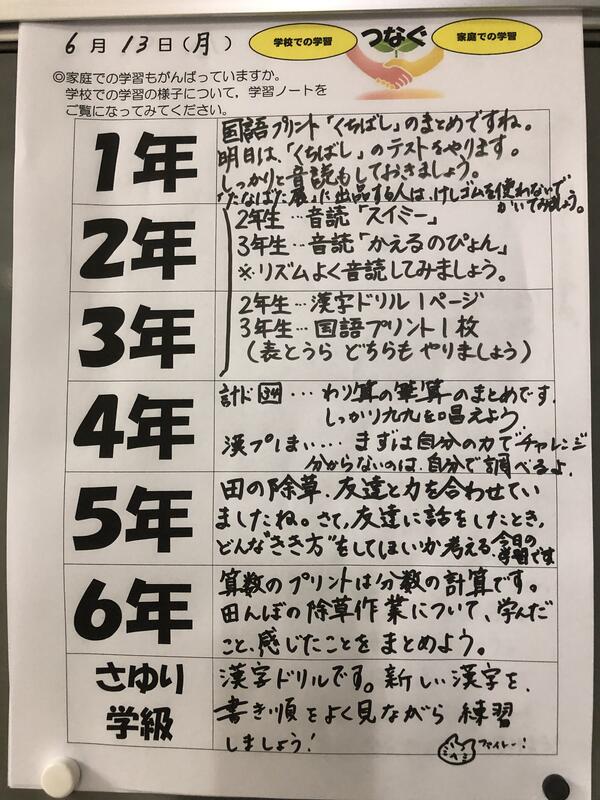 6月13日(月)
学校での学習
つなぐ
家庭での学習
◎家庭での学習もがんばっていますか。
学校での学習の様子について，学習ノートを
ご覧になってみてください。
1年
国語プリント「くちばし」のまとめですね。
明日は、「くちばし」のテストをやります。
しっかりと音読もしておきましょう。
「たなばた展」に出品する人は、けしゴムを使わないで
かいてみましょう。
2年
2年生…音読「スイミー」
3年生…音読「かえるのぴょん」
※リズムよく音読してみましょう。
3年
2年生…漢字ドリル1ページ
3年生…国語プリント1枚
(表とうら どちらも やりましょう)
4年
計ド34…わり算の筆算のまとめです。
しっかり九九を唱えよう
漢プしまい…まずは自分の力でチャレンジ
分からないのは、自分で調べるよ。
5年
田の除草、友達と力を合わせてい
ましたね。さて、友達に話をしたとき、
どんな"きき方"をしてほしいか考える、今日の
学習です
6年
算数のプリントは分数の計算です。
田んぼの除草作業について、学んだ
こと、感じたことをまとめよう。
さゆり
学級
漢字ドリルです。新しい漢字を、
書き順をよく見ながら練習
しましょう!
ファイトー!